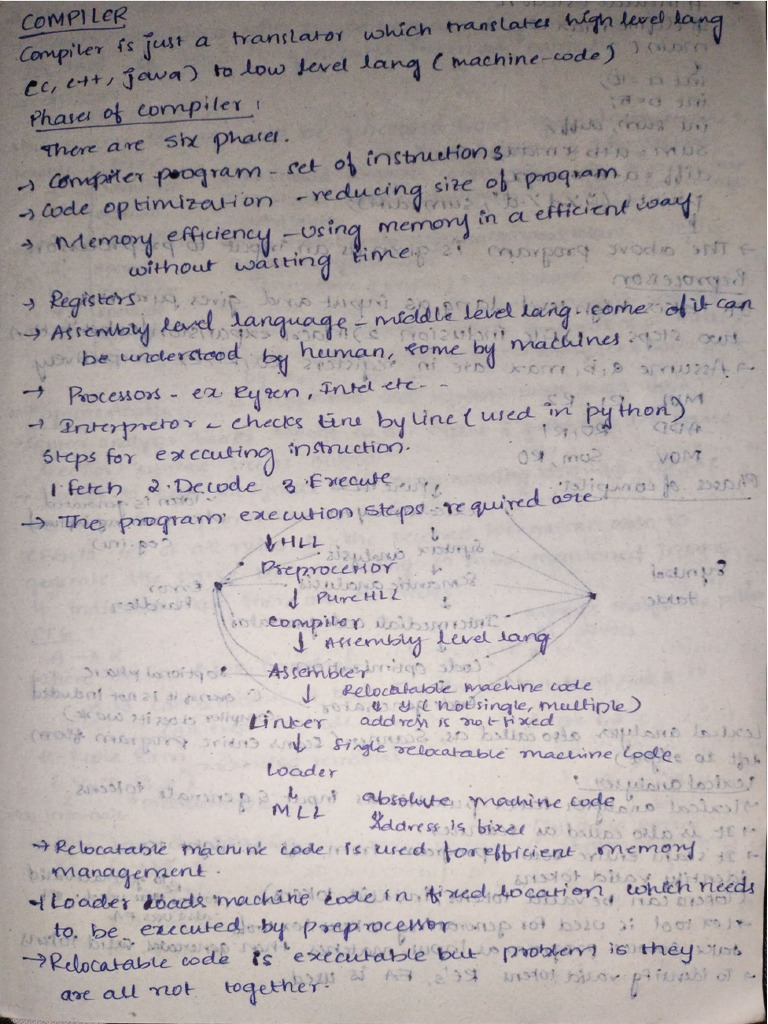 COMPILER
Compiler is just a translator which translates high level lang
(c, c++, java) to low level lang (machine-code)
Phases of compiler :
There are six phases.
→ Compiler program - set of instructions
→ Code optimization - reducing size of program
→ Memory efficiency - using memory in a efficient way
without wasting time.
→ Registers
→ Assembly level language - middle level lang. some of it can
be understood by human, some by machines.
→ Processors - ex Ryzen, Intel etc - -
→ Interpretor - checks line by line (used in python)
Steps for executing instruction.
1. Fetch 2. Decode 3. Execute
→ The program execution steps required are
↓ HLL
Preprocessor
↓ Pure HLL
Compiler
↓ Assembly level lang
Assembler
↓ Relocatable machine code
(not single, multiple)
Linker address is not fixed
↓ Single relocatable machine code
Loader
↓ absolute machine code
MLL
Address is bixed
→ Relocatable machine code is used for efficient memory
management.
→ Loader loads machine code in fixed location, which needs
to be executed by preprocessor
→ Relocatable code is executable but problem is they
are all not together.